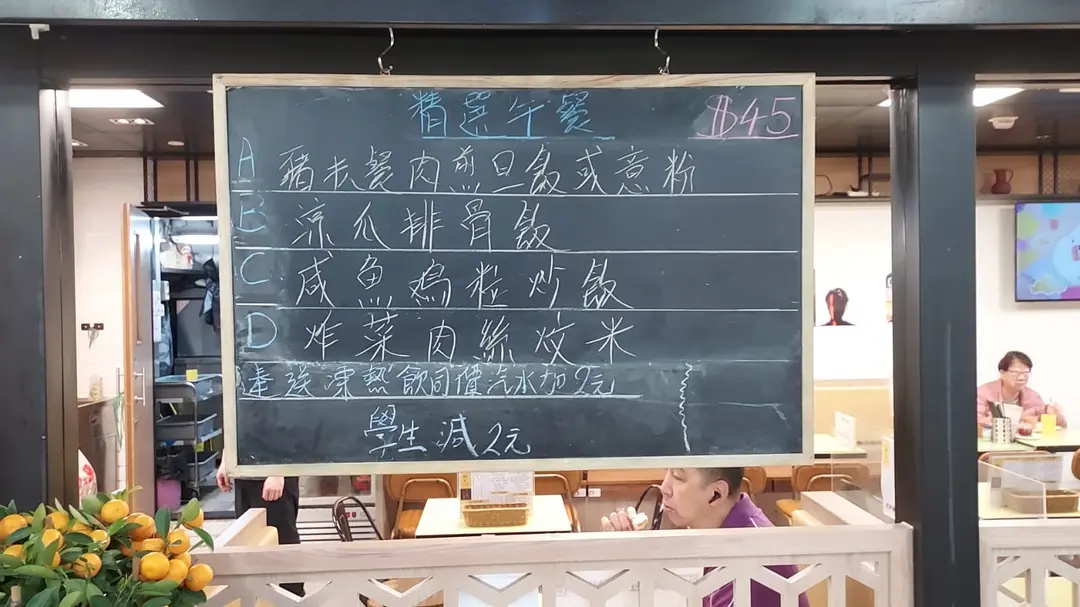 精選午餐 $45
A 豬扒餐肉煎旦飯或意粉
B 涼瓜排骨飯
C 咸魚鸡粒炒飯
D 炸菜肉絲炆米
連送凍熱飲同價汽水加2元
學生減2元